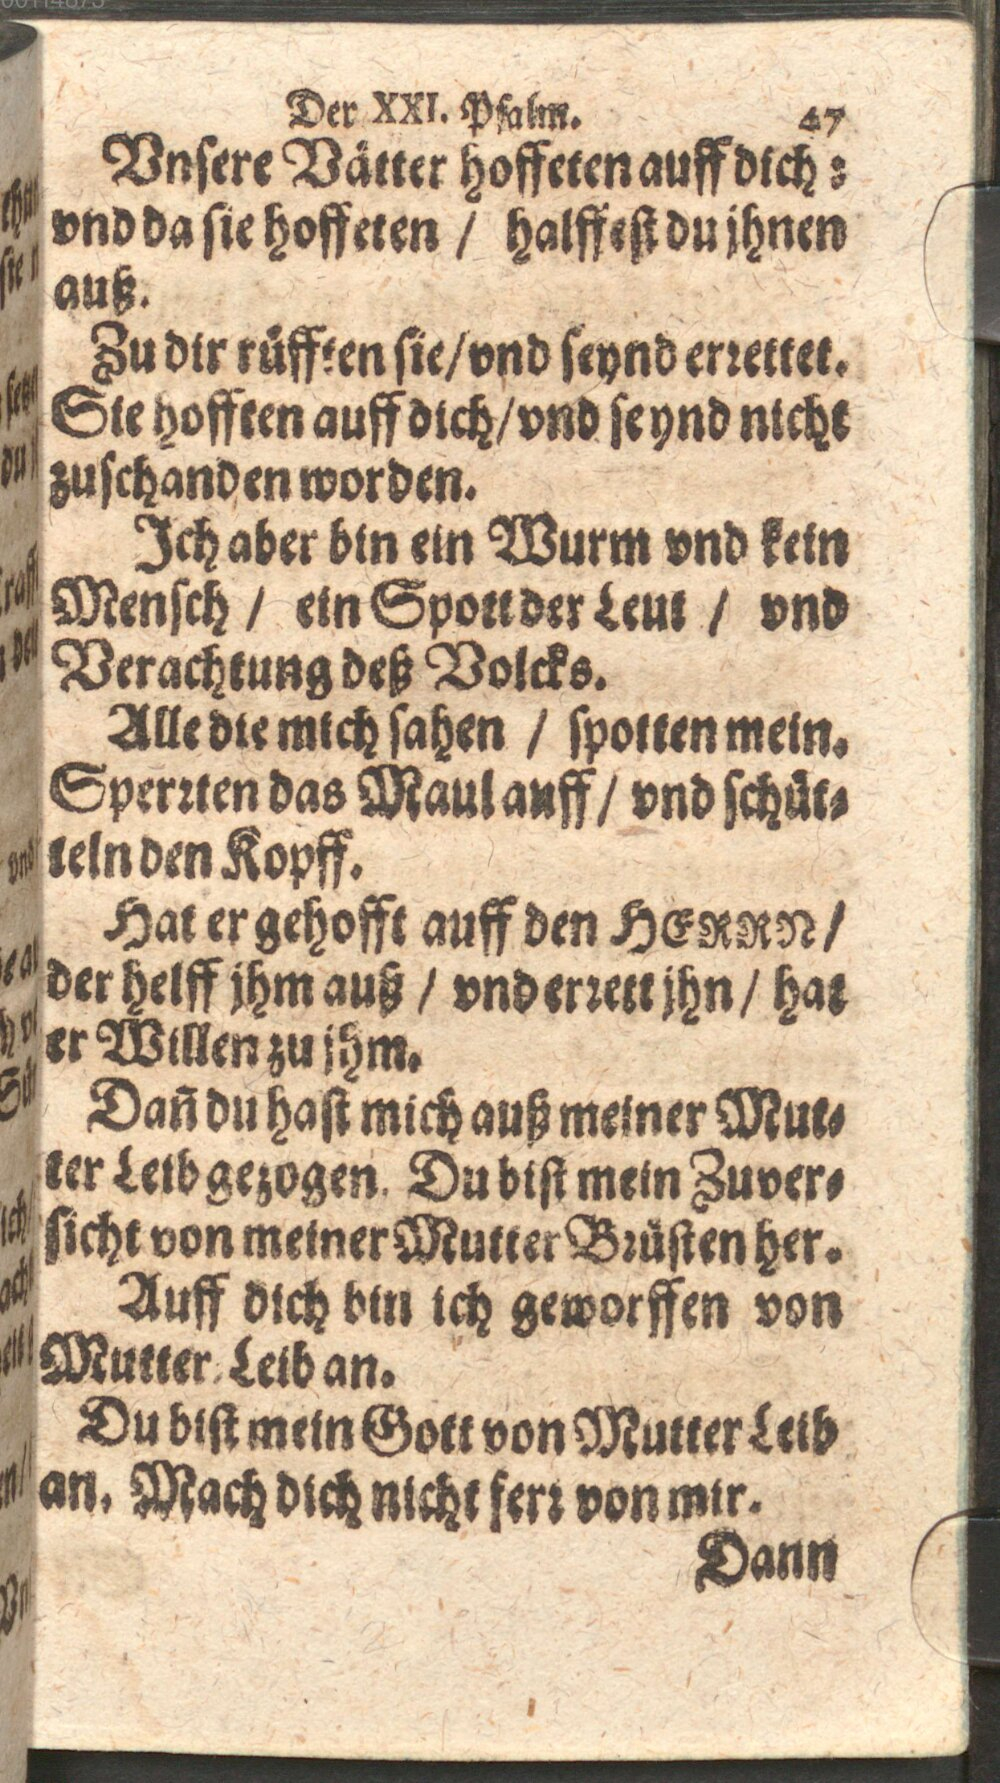 Der XXI. Psalm. 47
Vnsere Vätter hoffeten auff dich:
vnd da sie hoffeten / halffest du jhnen
auß.
Zu dir rüfften sie/ vnd seynd errettet.
Sie hofften auff dich/ vnd seynd nicht
zuschanden worden.
Ich aber bin ein Wurm vnd kein
Mensch / ein Spott der Leut / vnd
Verachtung deß Volcks.
Alle die mich sahen / spotten mein.
Sperrten das Maul auff/ vnd schüt-
teln den Kopff.
Hat er gehofft auff den HERRN/
der helff jhm auß / vnd errett jhn/ hat
er Willen zu jhm.
Dañ du hast mich auß meiner Mut-
ter Leib gezogen. Du bist mein Zuver-
sicht von meiner Mutter Brüsten her.
Auff dich bin ich geworffen von
Mutter Leib an.
Du bist mein Gott von Mutter Leib
an. Mach dich nicht ferr von mir.
Dann